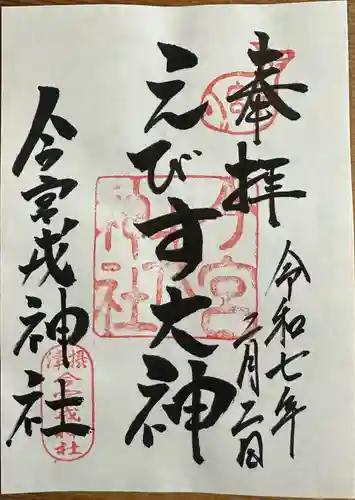 奉拝
令和七年
二月二日
えびす大神
今宮戎神社
今宮戎神社
摂津
今宮戎神社